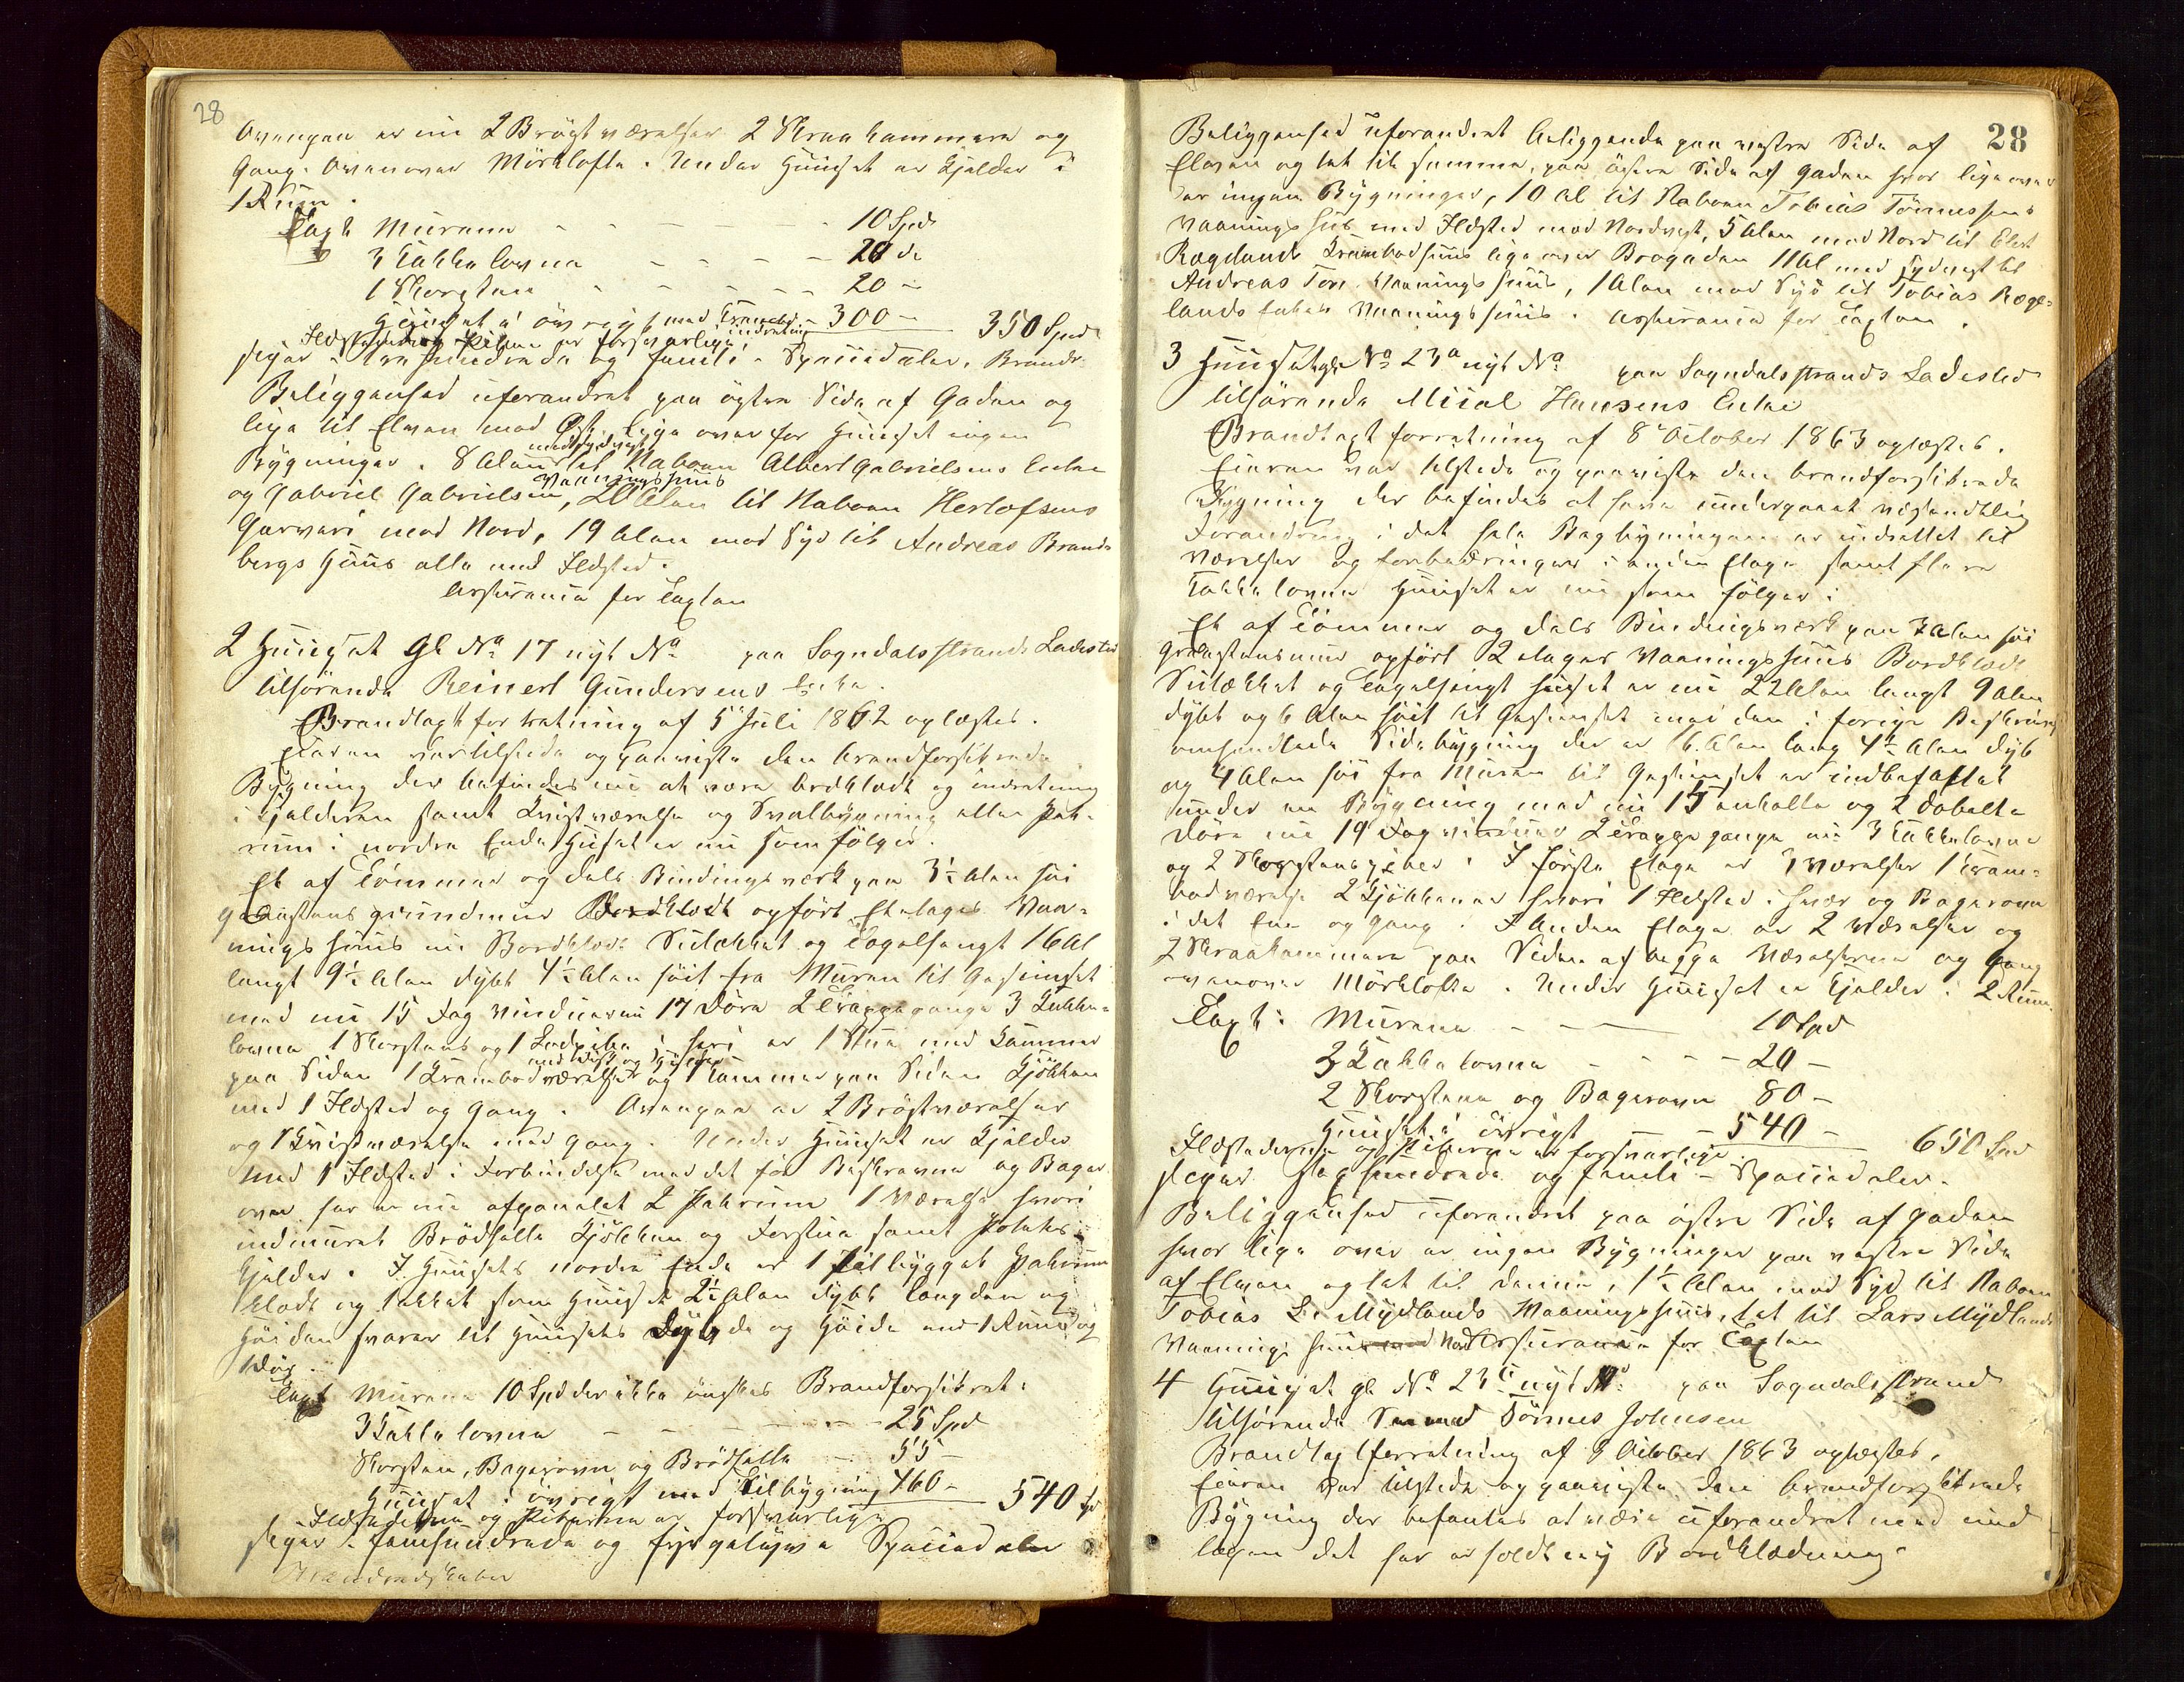 28
Ovenpaa er nu 2 Brøgstværelser 2 Skraakammere og
Gang. Ovenover Mørklofte. Under Huuset er Kjelder i
1 Rum.
Taxt Murene - - - - 10 Spd
3 Kakkelovne - - - - 20 de
1 Skorsteen - - - - 20 -
Huuset i övrigt med Krambod indretning - 300 - 350 Spd
Ildstederne og Piberne er forsvarlige
siger Trehundrede og femti Speciedaler. Brandr
Beliggenhed uforandret paa östre Side af Gaden og
lige til Elven mod Øst. Lige over for Huuset ingen
Bygninger. 8 Alen mod Sydvest til Naboen Albert Gabrielsens Enke
og Gabriel Gabrielsen Vaaningshuus, 20 Alen til Naboen Herlofsens
Garveri mod Nord, 19 Alen mod Syd til Andreas Brands
bergs Huus alle med Ildsted.
Assurance for Taxten
2 Huuset Gl No 17 nyt No paa Sogndalsstrands Ladested
tilhörende Reinert Gundersens Enke.
Brandtaxtforretning af 5 Juli 1862 oplæstes.
Eieren var tilstede og paaviste den brandforsikrede
Bygning der befindes nu at være bordklædt og indretning
i Kjelderen samt Kvistværelse og Svalbygning eller Pak-
rum i nordre Ende Huset er nu som fölger.
Et af Tömmer og dels Bindingsværk paa 3½ Alen höi
graastens grundmur Bordklædt opfört Etetages Vaa-
ningshuus nu Bordklædt Sutækket og Tegelhængt 16 Al
langt 9½ Alen dybt 4½ Alen höit fra Muren til Gesimset
med nu 15 Fag vinduer nu 17 Döre 2 Trappegange 3 Kakke-
lovne 1 Skorsteens og 1 Ledpibe i hvori er 1 Stue med Kammer
paa Siden 1 Krambodværelse med Disk og Hylder og 1 Kammer paa Siden Kjökken
med 1 Ildsted og Gang. Ovenpaa er 2 Brøstværelser
og 1 Kvistværelse med Gang. Under Huuset er Kjelder
med 1 Ildsted i Forbindelse med det för Beskrevne og Bager
ovn her er nu afpanelet 2 Pakrum 1 Værelse hvori
indmuret Brödhelle Kjökken og Forstue samt Potetes-
Kjelder. I Huusets nordre Ende er 1 tilbygget Pakrum
klædt og tækket som Huuset 2½ Alen dybt længden og
Höiden svarer til Huusets Dybde og Höide med 1 Rum og
1 Dör.
Taxt Murene 10 Spd der ikke önskes Brandforsikret.
3 Kakkelovne - - - - 25 Spd
Skorsteen, Bagerovn og Brödhelle - 55 -
Huuset i övrigt med Tilbygning 460 - 540 Spd
Ildstederne og Piberne er forsvarlige
siger femhundrede og fyrgetyve Speciedaler
Brandredskaber
28
Beliggenhed uforandret beliggende paa vestre Side af
Elven og tet til samme, paa östre Side af Gaden hvor lige over
er ingen Bygninger, 10 Al til Naboen Tobias Tönnessens
Vaaningshus med Ildsted mod Nordvest, 5 Alen mod Nord til Elert
Rægelands Krambodhuus lige over Brogaden 11 Al mod sydvest til
Andreas Tors Vaaningshuus, 1 Alen mod Syd til Tobias Ræge-
lands Enkes Vaaningshuus. Assurance for Taxten.
3 Huuset gl No 23a nyt No paa Sogndalsstrands Ladested
tilhörende Miial Hansens Enke
Brandtaxtforretning af 8 October 1863 oplæstes.
Eieren var tilstede og paaviste den brandforsikrede
Bygning der befindes at have undergaaet væsendtlig
Forandring i det hele Bagbygningen er indrettet til
Værelser og forbedringer i anden Etage samt flere
Kakkelovne Huuset er nu som fölger:
Et af Tömmer og dels Bindingsværk paa 3 Alen höi
Graastensmur opfört 2 etages Vaaningshuus Bordklædt
Sutækket og Tegelhængt huuset er nu 22 Alen langt 9 Alen
dybt og 6 Alen höit til Gesimset mei den i forrige Beskrivelse
omhandlede Sidebygning der er 6 Alen lang 4½ Alen dyb
og 4 Alen höi fra Muren til Gesimset er indbefattet
under en Bygning med nu 15 enkelte og 2 dobelte
Döre nu 19 Fag vinduer 2 Trappegange nu 3 Kakkelovne
og 2 Skorsteenspiber. I förste Etage er 3 Værelser 1 Kram-
bodværelse 2 Kjökkener hvori 1 Ildsted i hver og Bagerovn
i det Ene og Gang. I Anden Etage er 2 Værelser og
2 Skraakammere paa Siden af begge Værelserne og Gang
ovenover Mörklofte. Under Huuset er Kjelder i 2 Rum.
Taxt: Murene - - - 10 Spd
3 Kakkelovne - - - - 20 -
2 Skorstene og Bagerovn 80 -
Huuset i övrigt - - 540 - 650 Spd
Ildstederne og Piberne er forsvarlige.
siger Sexhundrede og femti - Speciedaler.
Beliggenhed uforandret paa östre Side af Gaden
hvor lige over er ingen Bygninger paa vestre Side
af Elven og tet til denne, 1½ Alen mod Syd til Naboen
Tobias L. Mydlands Vaaningshuus, tet til Lars Mydlands
Vaaningshuus mod Nord Assurance for Taxten
4 Huuset gl No 23b nyt No paa Sogndalsstrand
tilhörende Sømand Tönnes Johnsen
Brandtaxtforretning af 8 October 1863 oplæstes,
Eieren var tilstede og paaviste den brandforsikrede
Bygning der befantes at være uforandret med und
tagen det har erholdt ny Bordklædning